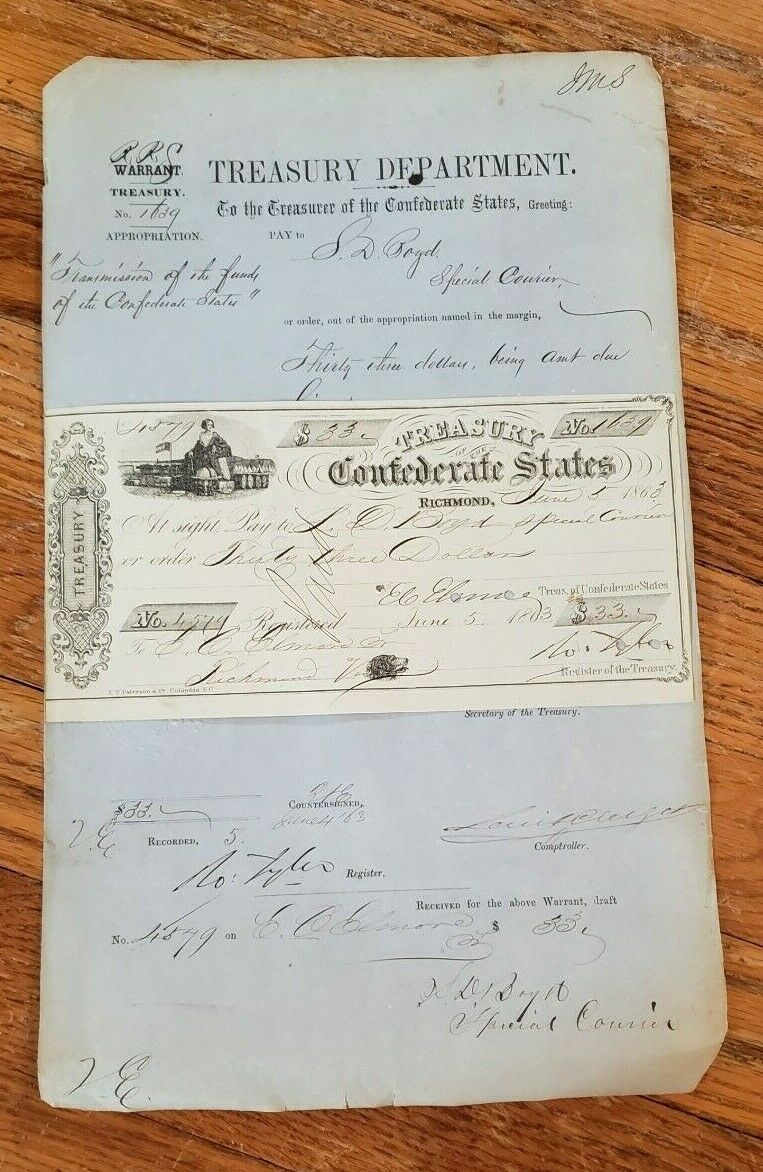 JMS
R.R.S
WARRANT.
TREASURY.
No. 1639
APPROPRIATION.
"Transmission of the funds
of the Confederate States"
TREASURY DEPARTMENT.
To the Treasurer of the Confederate States, Greeting:
PAY to S. D. Boyd
Special Courier
or order, out of the appropriation named in the margin,
Thirty three dollars, being amt due
4579 $33 TREASURY No. 1639
OF THE
Confederate States
RICHMOND, June 5 1863
At sight Pay to S. D. Boyd Special Courier
or order Thirty three Dollars
Paid
E C Elmore Treas. of Confederate States
No. 4579 Registered June 5. 1863 $33
To E. C. Elmore
Richmond Va
Ro: Tyler
Register of the Treasury.
TREASURY
J. T. Paterson & Co. Columbia, S.C.
Secretary of the Treasury.
$33.
COUNTERSIGNED,
June 4 '63
RECORDED, 5.
Comptroller.
Ro: Tyler Register.
RECEIVED for the above Warrant, draft
No. 4579 on E. C. Elmore $ 33
S D Boyd
Special Courier